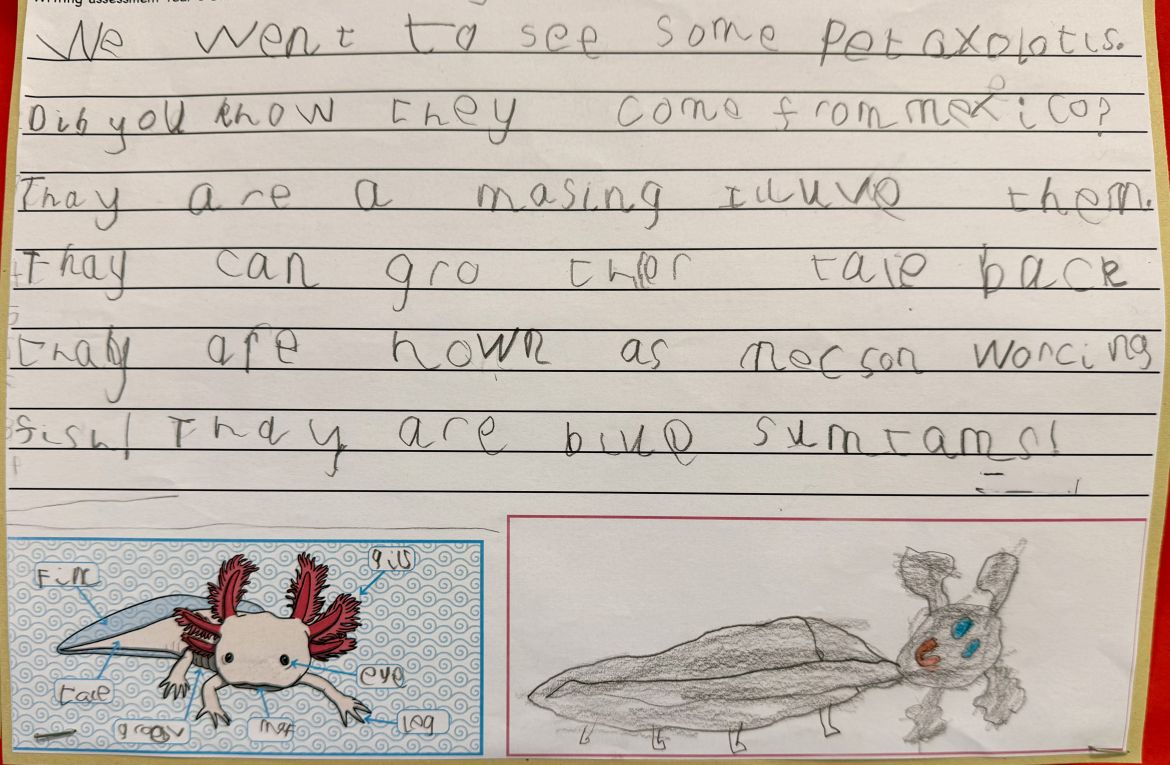 We went to see some pet axolotls.
Did you know they come from mexico?
Thay are a masing I luve them.
Thay can gro ther tale back
thay are nown as mecson worcing
fish! Thay are blue sumtams!
Finn
gills
tale
eye
leg